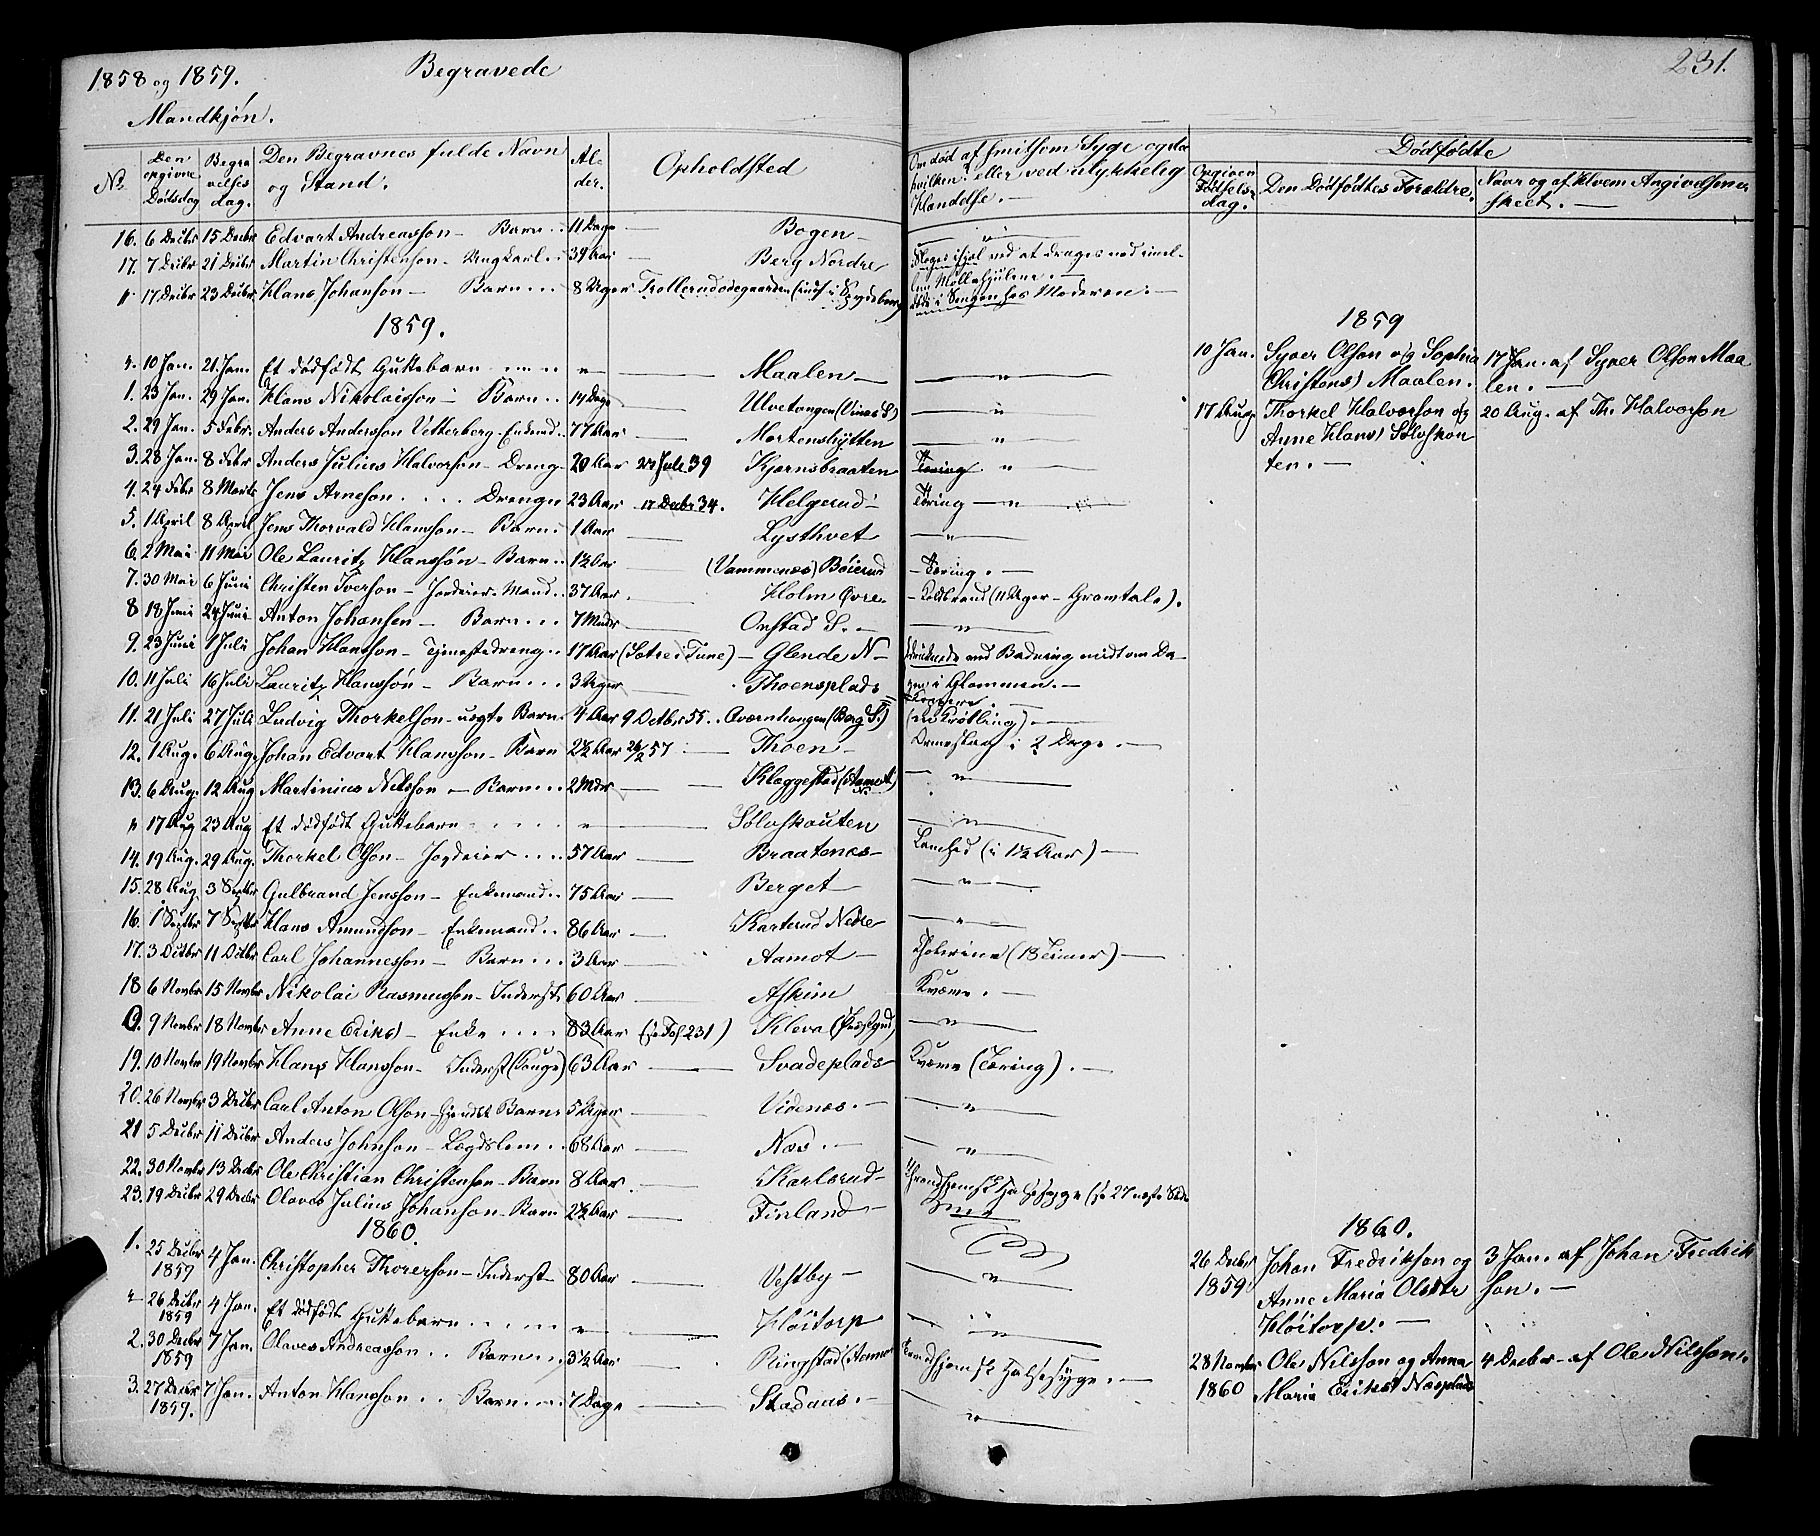 1858 og 1859. Begravede 231.
Mandkjøn.
No. Den opgivne Dødsdag Begravelsesdag. Den Begravnes fulde Navn og Stand. Alder. Opholdsted Om død af smitsom Syge og da hvilken? eller ved ulykkelig Hændelse. Dødfødte
Opgiven Fødselsdag. Den Dødfødtes Forældre. Naar og af hvem Angivelsen er skeet.
16. 6 Decbr 15 Decbr Edvart Andreasson Barn 11 Dage Bogen "
17. 7 Decbr 21 Decbr Martin Christenson Ungkarl 39 Aar Berg Nordre ihjel ved at drages ned imellem Møllehjulene.
" 17 Decbr 23 Decbr Hans Johanson Barn 8 Uger Trollerudødegaarden i Spydeberg i Sengen hos Moderen.
1859. 1859
" 10 Jan. 21 Jan. Et dødfødt Guttebarn " Maalen " 10 Jan. Syver Olson og Sophia Christens) Maalen. 17 Jan. af Syver Olson Maalen.
1. 23 Jan. 29 Jan. Hans Nikolaisson Barn 14 Dage Ulvetangen (Vines S) " 17 Aug. Thorkel Halvorson og Anne Hans) Sølvskouten. 20 Aug. af Th. Halvorson
2. 29 Jan. 5 Febr. Anders Andersson Vetterberg 77 Aar Mortenshytten "
3. 28 Jan. 8 Febr Anders Julius Halvorson Dreng 20 Aar 24 Juli 39 Kjærnsbraaten Tæring "
4. 24 Febr 8 Marts Jens Arneson Dreng 23 Aar 17 Decbr 34. Helgerud Tæring "
5. 1 April 8 April Jens Thorvald Hansson Barn 1 Aar Lysthvet "
6. 2 Mai 11 Mai Ole Lauritz Hanssøn Barn 1½ Aar (Vammenæs) Böierud Tæring.
7. 30 Mai 6 Juni Christen Iverson Mand 37 Aar Holm Øvre Koldbrand (11 Uger - Gramtale).
8 18 Juni 24 Juni Anton Johansen Barn 7 Mdr Onstad S. "
9. 23 Juni 1 Juli Johan Hansson Tjenestedreng 17 Aar (Sætre i Tune) Glende N druknede ved Badning midt om Dagen i Glommen.
10. 11 Juli 16 Juli Lauritz Hanssøn Barn 3 Uger Thoensplads
11. 21 Juli 27 Juli Ludvig Thorkelson uægte Barn 4 Aar 9 Octbr 55. Qværnhaugen (Berg S.)
12. 1 Aug. 6 Aug. Johan Edvart Hansson Barn 2½ Aar 26/2 57 Thoen i 2 Dage.
13. 6 Aug. 12 Aug Martinius Nilsson Barn 2 Mdr Kleggestad (Aamodt N.) "
" 17 Aug 23 Aug Et dødfødt Guttebarn " Sølvskouten "
14. 19 Aug. 29 Aug. Thorkel Olson Jordeier 57 Aar Braatenæs (i 1½ Aar)
15. 28 Aug. 3 Septbr Gulbrand Jensson Enkemand 75 Aar Berget "
16. 1 Septbr 7 Septbr Hans Amundson Enkemand 86 Aar Karterud Nedre "
17. 3 Octbr 11 Octbr Carl Johannesson Barn 3 Aar Aamot Cholerine (18 Timer)
18 6 Novbr 15 Novbr Nikolai Rasmusson Inderst 60 Aar Askim Kræme.
9 Novbr 18 Novbr Anne Eriks) Enke 83 Aar (se Fol 231) Kleva "
19. 10 Novbr 19 Novbr Hans Hansson Inderst 63 Aar Svadeplads Kræme (Tæring).
20. 26 Novbr 3 Decbr Carl Anton Olson Barn 5 Uger Videnæs. "
21 5 Decbr 11 Decbr Anders Johnson Lægdslem 68 Aar Næs. "
22. 30 Novbr 13 Decbr Ole Christian Christenson Barn 8 Aar Karlsrud Trondhjemsk Halssyge
23. 19 Decbr 29 Decbr Olaves Julius Johanson Barn 2½ Aar Finland
1860. 1860.
1. 25 Decbr 1859 4 Jan. Christopher Thorerson Inderst 80 Aar Vestby " 26 Decbr 1859 Johan Fredrikson og Anne Maria Olsdtr Höitorp. 3 Jan. af Johan Fredrikson.
" 26 Decbr 1859 4 Jan. Et dødfødt Guttebarn " Höitorp "
2. 30 Decbr 1859 7 Jan. Olaves Andreasson Barn 3½ Aar Ringstad Trondhjemsk Halssyge. 28 Novbr 1860 Ole Nilsson og Anna Maria Eriks) Næsplads 4 Decbr af Ole Nilsson.
3. 27 Decbr 1859. 7 Jan. Anton Hansson Barn 7 Dage Stadaas. "